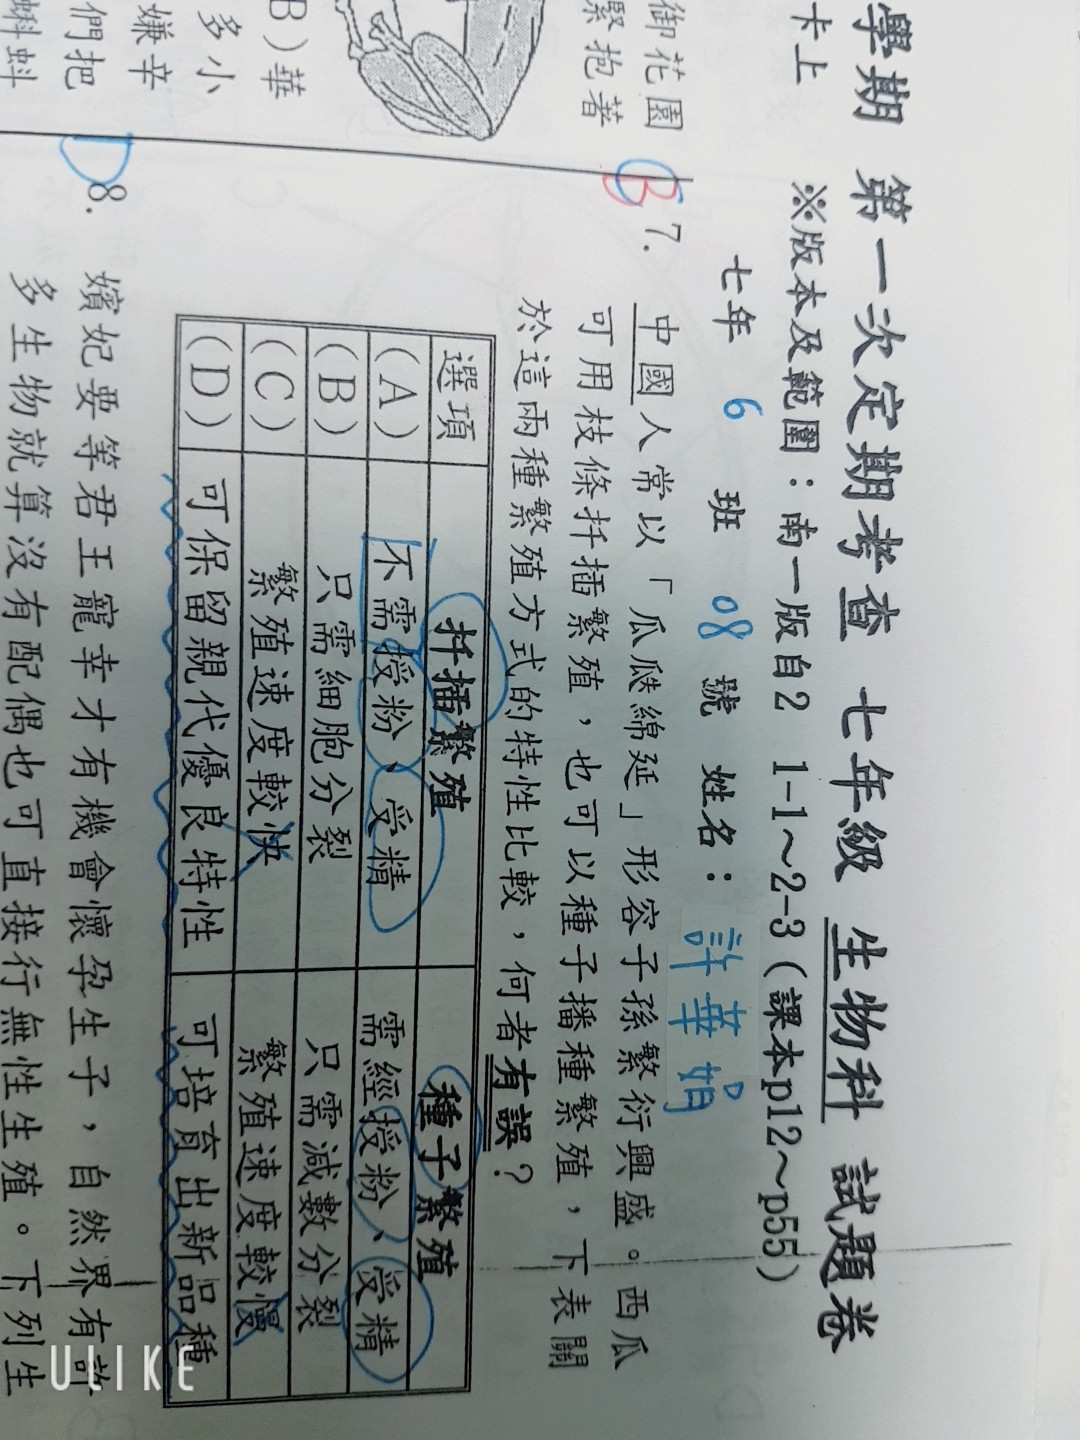 學期 第一次定期考查 七年級 生物科 試題卷
卡上 ※版本及範圍：南一版自2 1-1～2-3（課本p12～p55）
七年 6 班 08 號 姓名： 許華娟
御花園
緊抱著
B）華
多小
嫌辛
們把
蝌蚪
B 7. 中國人常以「瓜瓞綿延」形容子孫繁衍興盛。西瓜
可用枝條扦插繁殖，也可以種子播種繁殖，下表關
於這兩種繁殖方式的特性比較，何者有誤？
選項 扦插繁殖 種子繁殖
（A） 不需授粉、受精 需經授粉、受精
（B） 只需細胞分裂 只需減數分裂
（C） 繁殖速度較快 繁殖速度較慢
（D） 可保留親代優良特性 可培育出新品種
D 8. 嬪妃要等君王寵幸才有機會懷孕生子，自然界有許
多生物就算沒有配偶也可直接行無性生殖。下列生
ULIKE